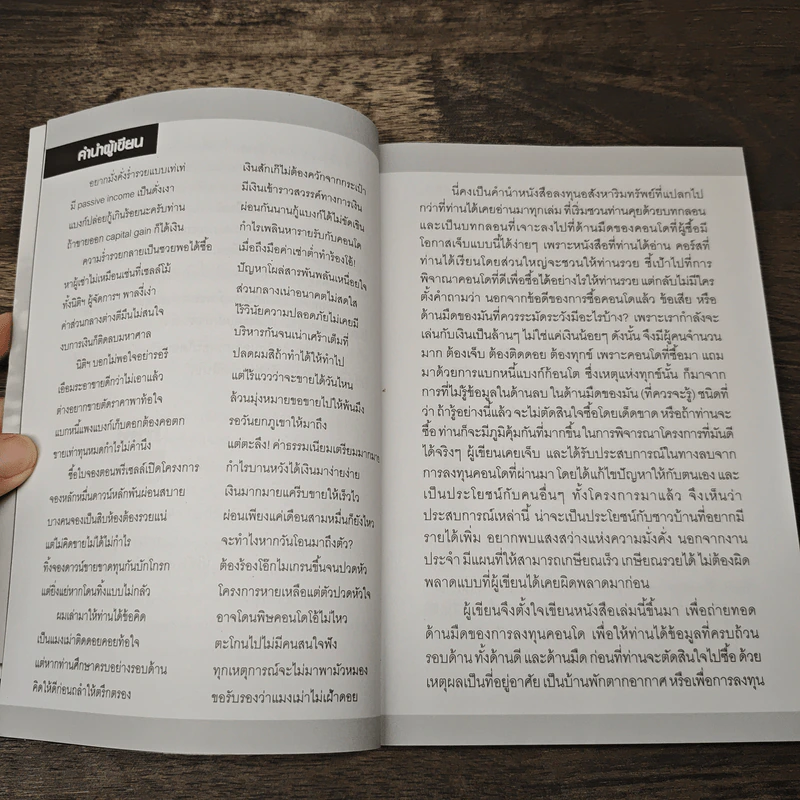 คำนำผู้เขียน
อยากมั่งคั่งร่ำรวยแบบเท่เท่ เงินสักเก๊ไม่ต้องควักจากกระเป๋า
มี passive income เป็นดั่งเงา มีเงินเช้าราวสวรรค์ทางการเงิน
แบงก์ปล่อยกู้เกินร้อยนะครับท่าน ผ่อนกันนานกู้แบงก์ได้ไม่ขัดเขิน
ถ้าขายออก capital gain ก็ได้เงิน กำไรเพลินหารายรับกับคอนโด
ความร่ำรวยกลายเป็นซวยพอได้ซื้อ เมื่อถึงมือค่าเช่าต่ำทำร้องโอ้!
หาผู้เช่าไม่เหมือนเช่นที่เซลส์โม้ ปัญหาโผล่สารพันพลันเหนื่อยใจ
ทั้งนิติฯ ผู้จัดการฯ พาลงี่เง่า ส่วนกลางเน่าอนาคตไม่สดใส
ค่าส่วนกลางต่างตีมึนไม่สนใจ ไร้วินัยความปลอดภัยไม่เคยมี
งบการเงินก็ติดลบมหาศาล บริหารกันจนเน่าเศร้าเต็มที่
นิติฯ บอกไม่พอใจอย่ารอรี ปลดผมสิถ้าทำได้ให้ทำไป
เอือมระอาขายดีกว่าไม่เอาแล้ว แต่ไร้แววว่าจะขายได้วันไหน
ต่างอยากขายตัดราคาพาท้อใจ ล้วนมุ่งหมายขอขายไปให้พ้นมึง
แบกหนี้แพงแบงก์เก็บดอกต้องคอตก รอวันยกภูเขาให้มาถึง
ขายเท่าทุนหมดกำไรไม่คำนึง แต่ตะลึง! ค่าธรรมเนียมเตรียมมากมาย
ซื้อใบจองตอนพรีเซลส์เปิดโครงการ กำไรบานหวังได้เงินมาง่ายง่าย
จองหลักหมื่นดาวน์หลักพันผ่อนสบาย เงินมากมายแค่รีบขายให้เร็วไว
บางคนจองเป็นสิบห้องต้องรวยแน่ ผ่อนเพียงแค่เดือนสามหมื่นก็ยังไหว
แต่ไม่คิดขายไม่ได้ไม่กำไร จะทำไงหากวันโอนมาถึงตัว?
ทิ้งจองดาวน์ขายขาดทุนกันบักโกรก ต้องร้องโอ๊กไมเกรนขึ้นจนปวดหัว
แต่ยิ่งแย่หากโดนทิ้งแบบไม่กลัว โครงการหายเหลือแต่ตัวปวดหัวใจ
ผมเล่ามาให้ท่านได้ข้อคิด อาจโดนพิษคอนโดโอ้ไม่ไหว
เป็นแมงเม่าติดดอยคอยท้อใจ ตะโกนไปไม่มีคนสนใจฟัง
แต่หากท่านศึกษาครบอย่างรอบด้าน ทุกเหตุการณ์จะไม่มาพามัวหมอง
คิดให้ดีก่อนถลำให้ตรึกตรอง ขอรับรองว่าแมงเม่าไม่เฝ้าดอย
นี่คงเป็นคำนำหนังสือลงทุนอสังหาริมทรัพย์ที่แปลกไป
กว่าที่ท่านได้เคยอ่านมาทุกเล่ม ที่เริ่มชวนท่านคุยด้วยบทกลอน
และเป็นบทกลอนที่เจาะลงไปที่ด้านมืดของคอนโดที่ผู้ซื้อมี
โอกาสเจ็บแบบนี้ได้ง่ายๆ เพราะหนังสือที่ท่านได้อ่าน คอร์สที่
ท่านได้เรียนโดยส่วนใหญ่จะชวนให้ท่านรวย ชี้เป้าไปที่การ
พิจาณาคอนโดที่ดีเพื่อซื้อได้อย่างไรให้ท่านรวย แต่กลับไม่มีใคร
ตั้งคำถามว่า นอกจากข้อดีของการซื้อคอนโดแล้ว ข้อเสีย หรือ
ด้านมืดของมันที่ควรระมัดระวังมีอะไรบ้าง? เพราะเรากำลังจะ
เล่นกับเงินเป็นล้านๆ ไม่ใช่แค่เงินน้อยๆ ดังนั้น จึงมีผู้คนจำนวน
มาก ต้องเจ็บ ต้องติดดอย ต้องทุกข์ เพราะคอนโดที่ซื้อมา แถม
มาด้วยการแบกหนี้แบงก์ก้อนโต ซึ่งเหตุแห่งทุกข์นั้น ก็มาจาก
การที่ไม่รู้ข้อมูลในด้านลบ ในด้านมืดของมัน (ที่ควรจะรู้) ชนิดที่
ว่า ถ้ารู้อย่างนี้แล้ว จะไม่ตัดสินใจซื้อโดยเด็ดขาด หรือถ้าท่านจะ
ซื้อ ท่านก็จะมีภูมิคุ้มกันที่มากขึ้น ในการพิจารณาโครงการที่มันดี
ได้จริงๆ ผู้เขียนเคยเจ็บ และได้รับประสบการณ์ในทางลบจาก
การลงทุนคอนโดที่ผ่านมา โดยได้แก้ไขปัญหาให้กับตนเอง และ
เป็นประโยชน์กับคนอื่นๆ ทั้งโครงการมาแล้ว จึงเห็นว่า
ประสบการณ์เหล่านี้ น่าจะเป็นประโยชน์กับชาวบ้านที่อยากมี
รายได้เพิ่ม อยากพบแสงสว่างแห่งความมั่งคั่ง นอกจากงาน
ประจำ มีแผนที่ให้สามารถเกษียณเร็ว เกษียณรวยได้ ไม่ต้องผิด
พลาดแบบที่ผู้เขียนได้เคยผิดพลาดมาก่อน
ผู้เขียนจึงตั้งใจเขียนหนังสือเล่มนี้ขึ้นมา เพื่อถ่ายทอด
ด้านมืดของการลงทุนคอนโด เพื่อให้ท่านได้ข้อมูลที่ครบถ้วน
รอบด้าน ทั้งด้านดี และด้านมืด ก่อนที่ท่านจะตัดสินใจไปซื้อ ด้วย
เหตุผลเป็นที่อยู่อาศัย เป็นบ้านพักตากอากาศ หรือเพื่อการลงทุน